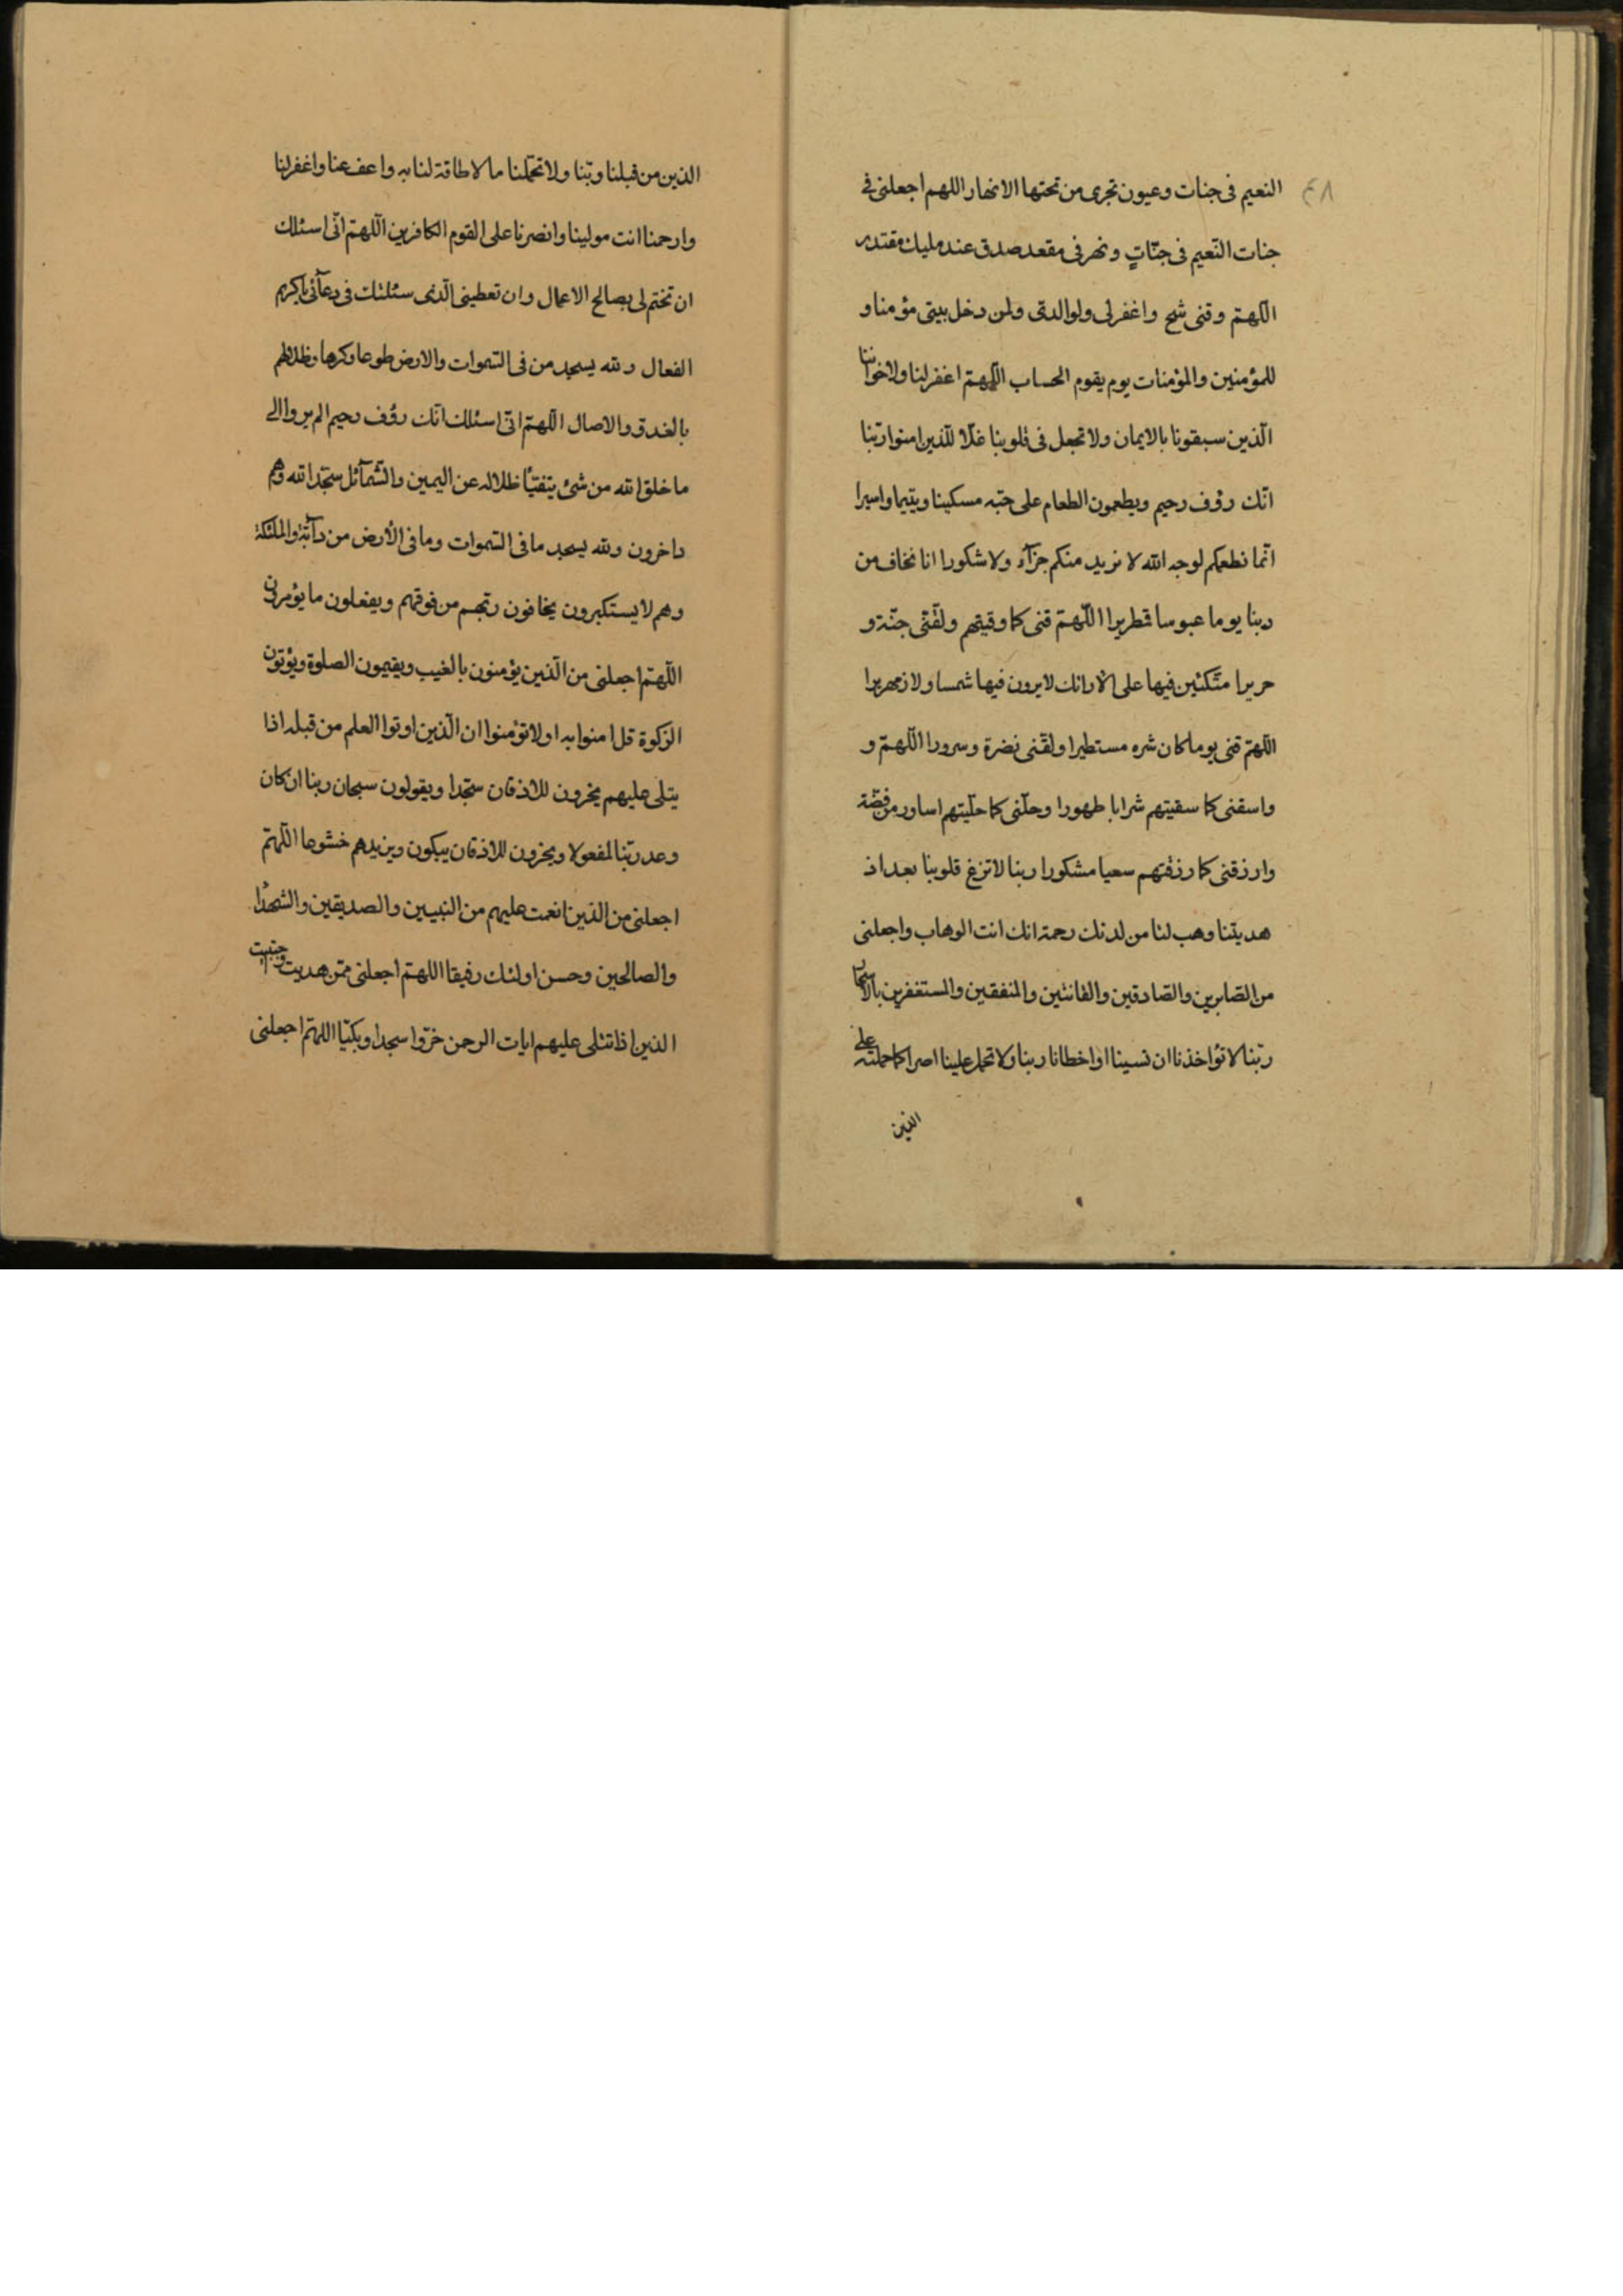 ٤٨
النعيم فى جنات وعيون تجرى من تحتها الانهار اللهم اجعلنى فى
جنات النّعيم فى جنّاتٍ ونهر فى مقعد صدق عند مليك مقتدر
اللّهمّ وقنى شح واغفر لى ولوالدىّ ولمن دخل بيتى مؤمنا و
للمؤمنين والمؤمنات يوم يقوم الحساب اللّهمّ اغفر لنا ولاخواننا
الّذين سبقونا بالايمان ولا تجعل فى قلوبنا غلّا للّذين امنوا ربّنا
انّك رؤف رحيم ويطعمون الطعام على حبّه مسكينا ويتيما واسيرا
انّما نطعمكم لوجه الله لا نريد منكم جزآء ولا شكورا انا نخاف من
ربنا يوما عبوسا قمطريرا اللّهمّ قنى كما وقيتهم ولقّنى جنّة و
حريرا متّكئين فيها على الارائك لا يرون فيها شمسا ولا زمهريرا
اللّهمّ قنى يوما كان شره مستطيرا ولقّنى نضرة وسرورا اللّهمّ و
واسقنى كما سقيتهم شرابا طهورا وحلّنى كما حلّيتهم اساور من فضّة
وارزقنى كما رزقتهم سعيا مشكورا ربنا لا تزغ قلوبنا بعد اذ
هديتنا وهب لنا من لدنك رحمة انك انت الوهاب واجعلنى
من الصّابرين والصّادقين والقانتين والمنفقين والمستغفرين بالاسحار
ربّنا لا تؤاخذنا ان نسينا او اخطانا ربنا ولا تحمل علينا اصرا كما حملته على
الذين
الذين من قبلنا ربّنا ولا تحمّلنا ما لا طاقة لنا به واعف عنا واغفر لنا
وارحمنا انت مولينا وانصرنا على القوم الكافرين اللّهمّ انّى اسئلك
ان تختم لى بصالح الاعمال وان تعطينى الّذى سئلتك فى دعآئى يا كريم
الفعال ولله يسجد من فى السّموات والارض طوعا وكرها وظلالهم
بالغدوّ والاصال اللّهمّ انّى اسئلك انّك رؤف رحيم الم يروا الى
ما خلق الله من شئ يتفيّأ ظلاله عن اليمين والشّمآئل سجّدا لله وهم
داخرون ولله يسجد ما فى السّموات وما فى الأرض من دآبّة والملئكة
وهم لا يستكبرون يخافون ربّهم من فوقهم ويفعلون ما يؤمرون
اللّهمّ اجعلنى من الّذين يؤمنون بالغيب ويقيمون الصلوة ويؤتون
الزكوة قل امنوا به او لا تؤمنوا ان الّذين اوتوا العلم من قبله اذا
يتلى عليهم يخرون للاذقان سجّدا ويقولون سبحان ربنا ان كان
وعد ربّنا لمفعولا ويخرون للاذقان يبكون ويزيدهم خشوعا اللّهمّ
اجعلنى من الذين انعمت عليهم من النبيين والصديقين والشهدآء
والصالحين وحسن اولئك رفيقا اللهمّ اجعلنى ممّن هديت واجتبيت
الذين اذا تتلى عليهم ايات الرحمن خرّوا سجدا وبكيّا اللهمّ اجعلنى